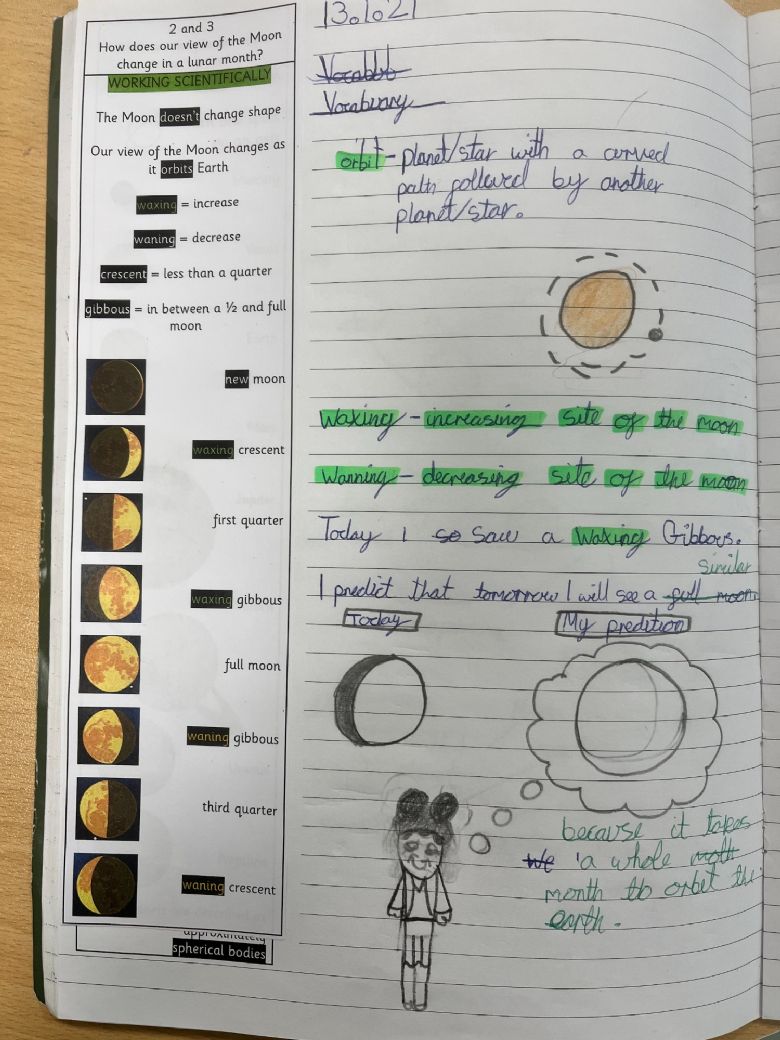 2 and 3
How does our view of the Moon
change in a lunar month?
WORKING SCIENTIFICALLY
The Moon doesn't change shape
Our view of the Moon changes as
it orbits Earth
waxing = increase
waning = decrease
crescent = less than a quarter
gibbous = in between a ½ and full
moon
new moon
waxing crescent
first quarter
waxing gibbous
full moon
waning gibbous
third quarter
waning crescent
approximately
spherical bodies
Vocabuary
orbit - planet/star with a curved
path pollowed by another
planet/star.
Waxing - increasing site of the moon
Wanning - decreasing site of the moon
Today I so saw a Waxing Gibbous.
similar
I predict that tomorrow I will see a full moon
Today
My predition
because it takes
we a whole moth
month to orbet the
earth.